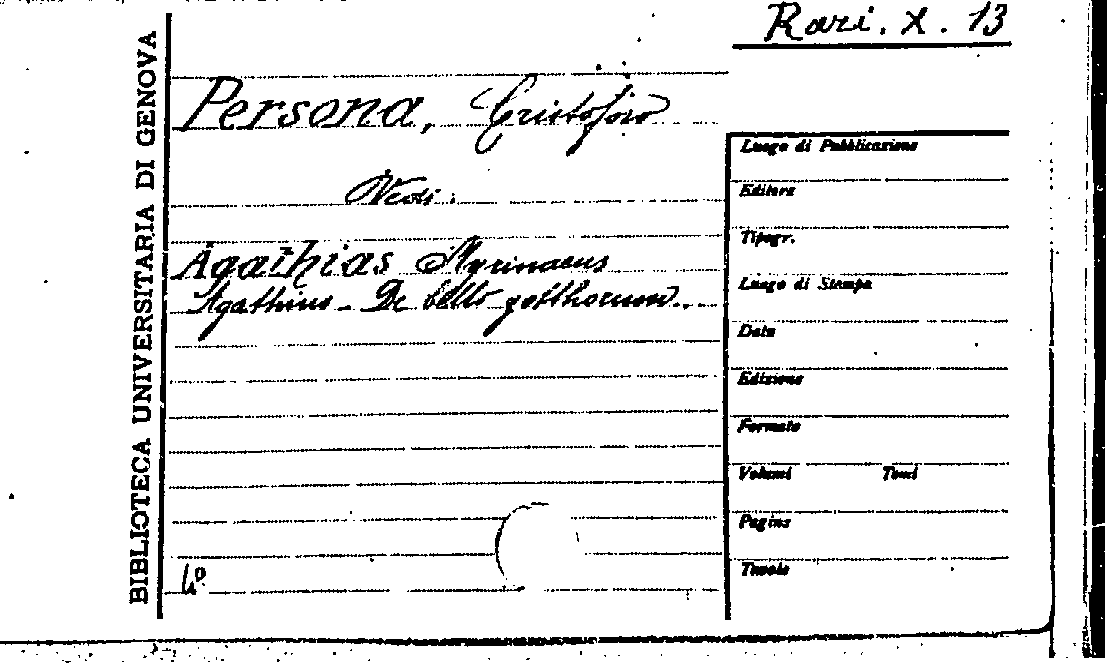 Rari. X. 13
BIBLIOTECA UNIVERSITARIA DI GENOVA
Persona, Cristoforo
Vedi:
Agathias Myrinaeus
Agathius - De bello gotthorum...
4º
Luogo di Pubblicazione
Editore
Tipogr.
Luogo di Stampa
Data
Edizione
Formato
Volumi Tomi
Pagine
Tavole